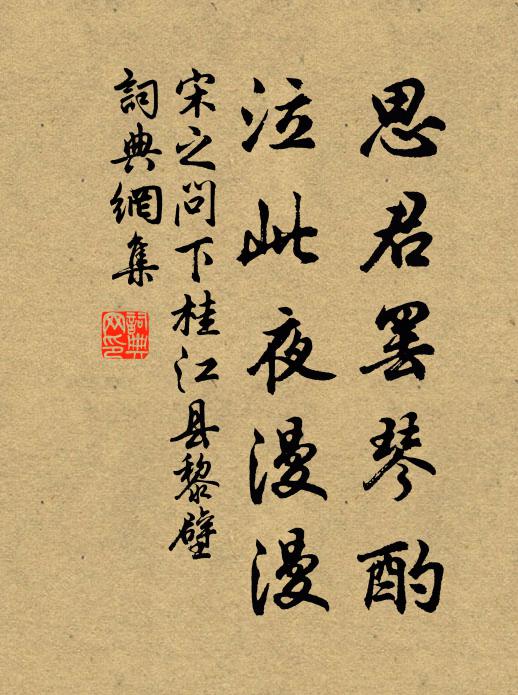 思君罢琴酌
泣此夜漫漫
宋之问下桂江县黎壁
詞典網集
詞典网印